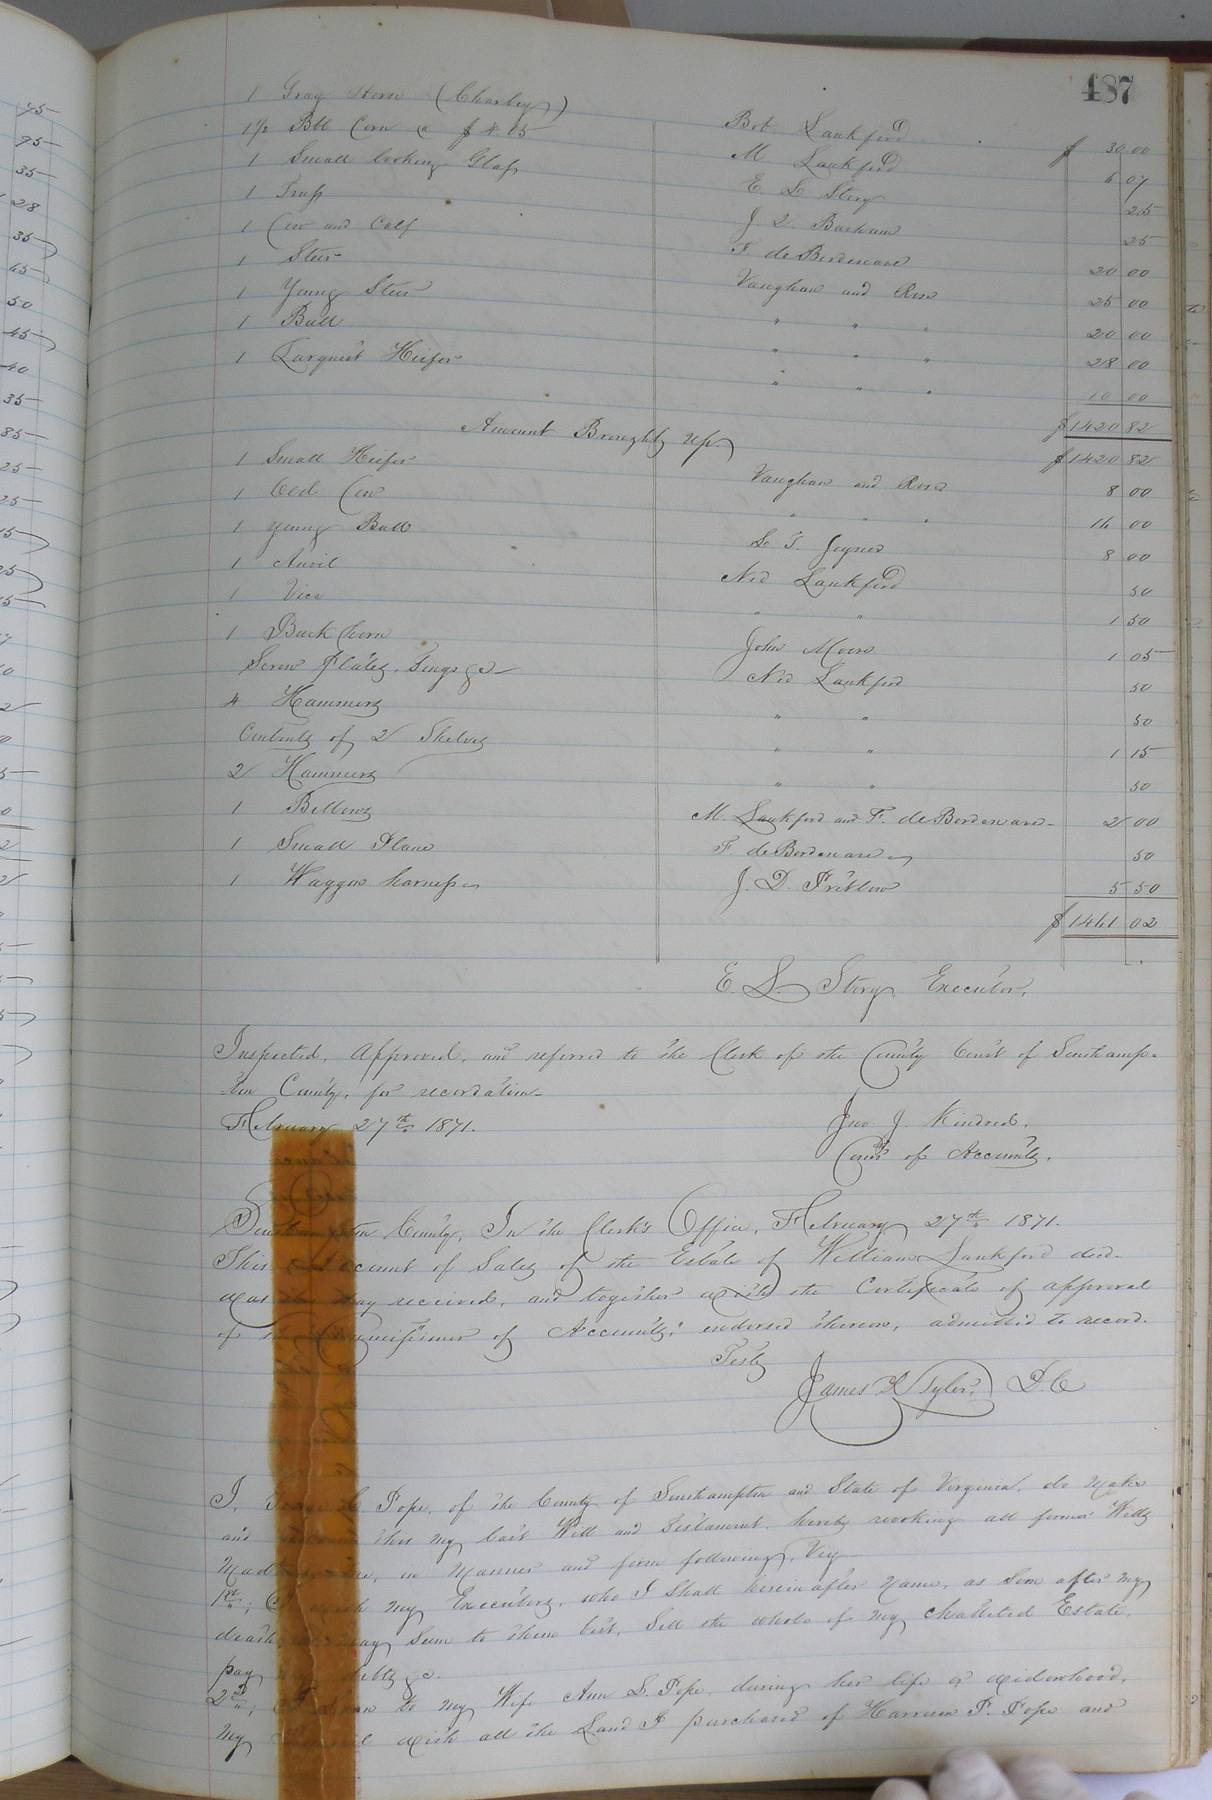 487
1 Gray Horse (Charley) Bob Lankford $ 30 00
1½ Bbl Corn @ $4.05 M Lankford 6 07
1 Small looking Glass E L Story 25
1 Trap J. L. Barham 25
1 Cow and Calf F. de Bordenave 20 00
1 Steer Vaughan and Rose 25 00
1 Young Steer " " " 20 00
1 Bull " " " 28 00
1 Largest Heifer " " " 10 00
$1420 82
Amount Brought Up. $1420 82
1 Small Heifer Vaughan and Rose 8 00
1 Old Cow " " " 00
1 Young Bull L. T. Joyner 8 00
1 Anvil Ned Lankford 50
1 Vice " " 1 50
1 Buck horn John Moore 1 05
Screw Plates, Tongs &c Ned Lankford 50
4 Hammers " " 50
Contents of 2 Shelves " " 1 15
2 Hammers " " 50
1 Bellows M. Lankford and F. de Bordenave 2 00
1 Small Plane F. deBordenave 50
1 Waggon harness J. D. Pretlow 5 50
$1461 02
E. L. Story Executor.
Inspected, Approved, and referred to the Clerk of the County Court of Southamp-
ton County, for recordation
February 27th 1871. Jno J. Kindred,
Comr of Accounts.
Southampton County, In the Clerk's Office, February 27th 1871.
This Account of Sales of the Estate of William Lankford decd.
was this day received, and together with the Certificate of approval
of the Commissioner of Accounts, endorsed thereon, admitted to record.
Teste
James Tyler, D.C
I, Pope, of the County of Southampton and State of Virginia, do make
and this my last Will and Testament, hereby revoking all former Wills
made by me, in manner and form following, Viz
1st; I wish my Executors, who I shall hereinafter name, as soon after my
death as may seem to them best, Sell the whole of my chatteled Estate,
pay my debts &c.
2nd; I loan to my Wife Ann S. Pope, during her life or widowhood,
my with all the Land I purchased of Harrison P. Pope and